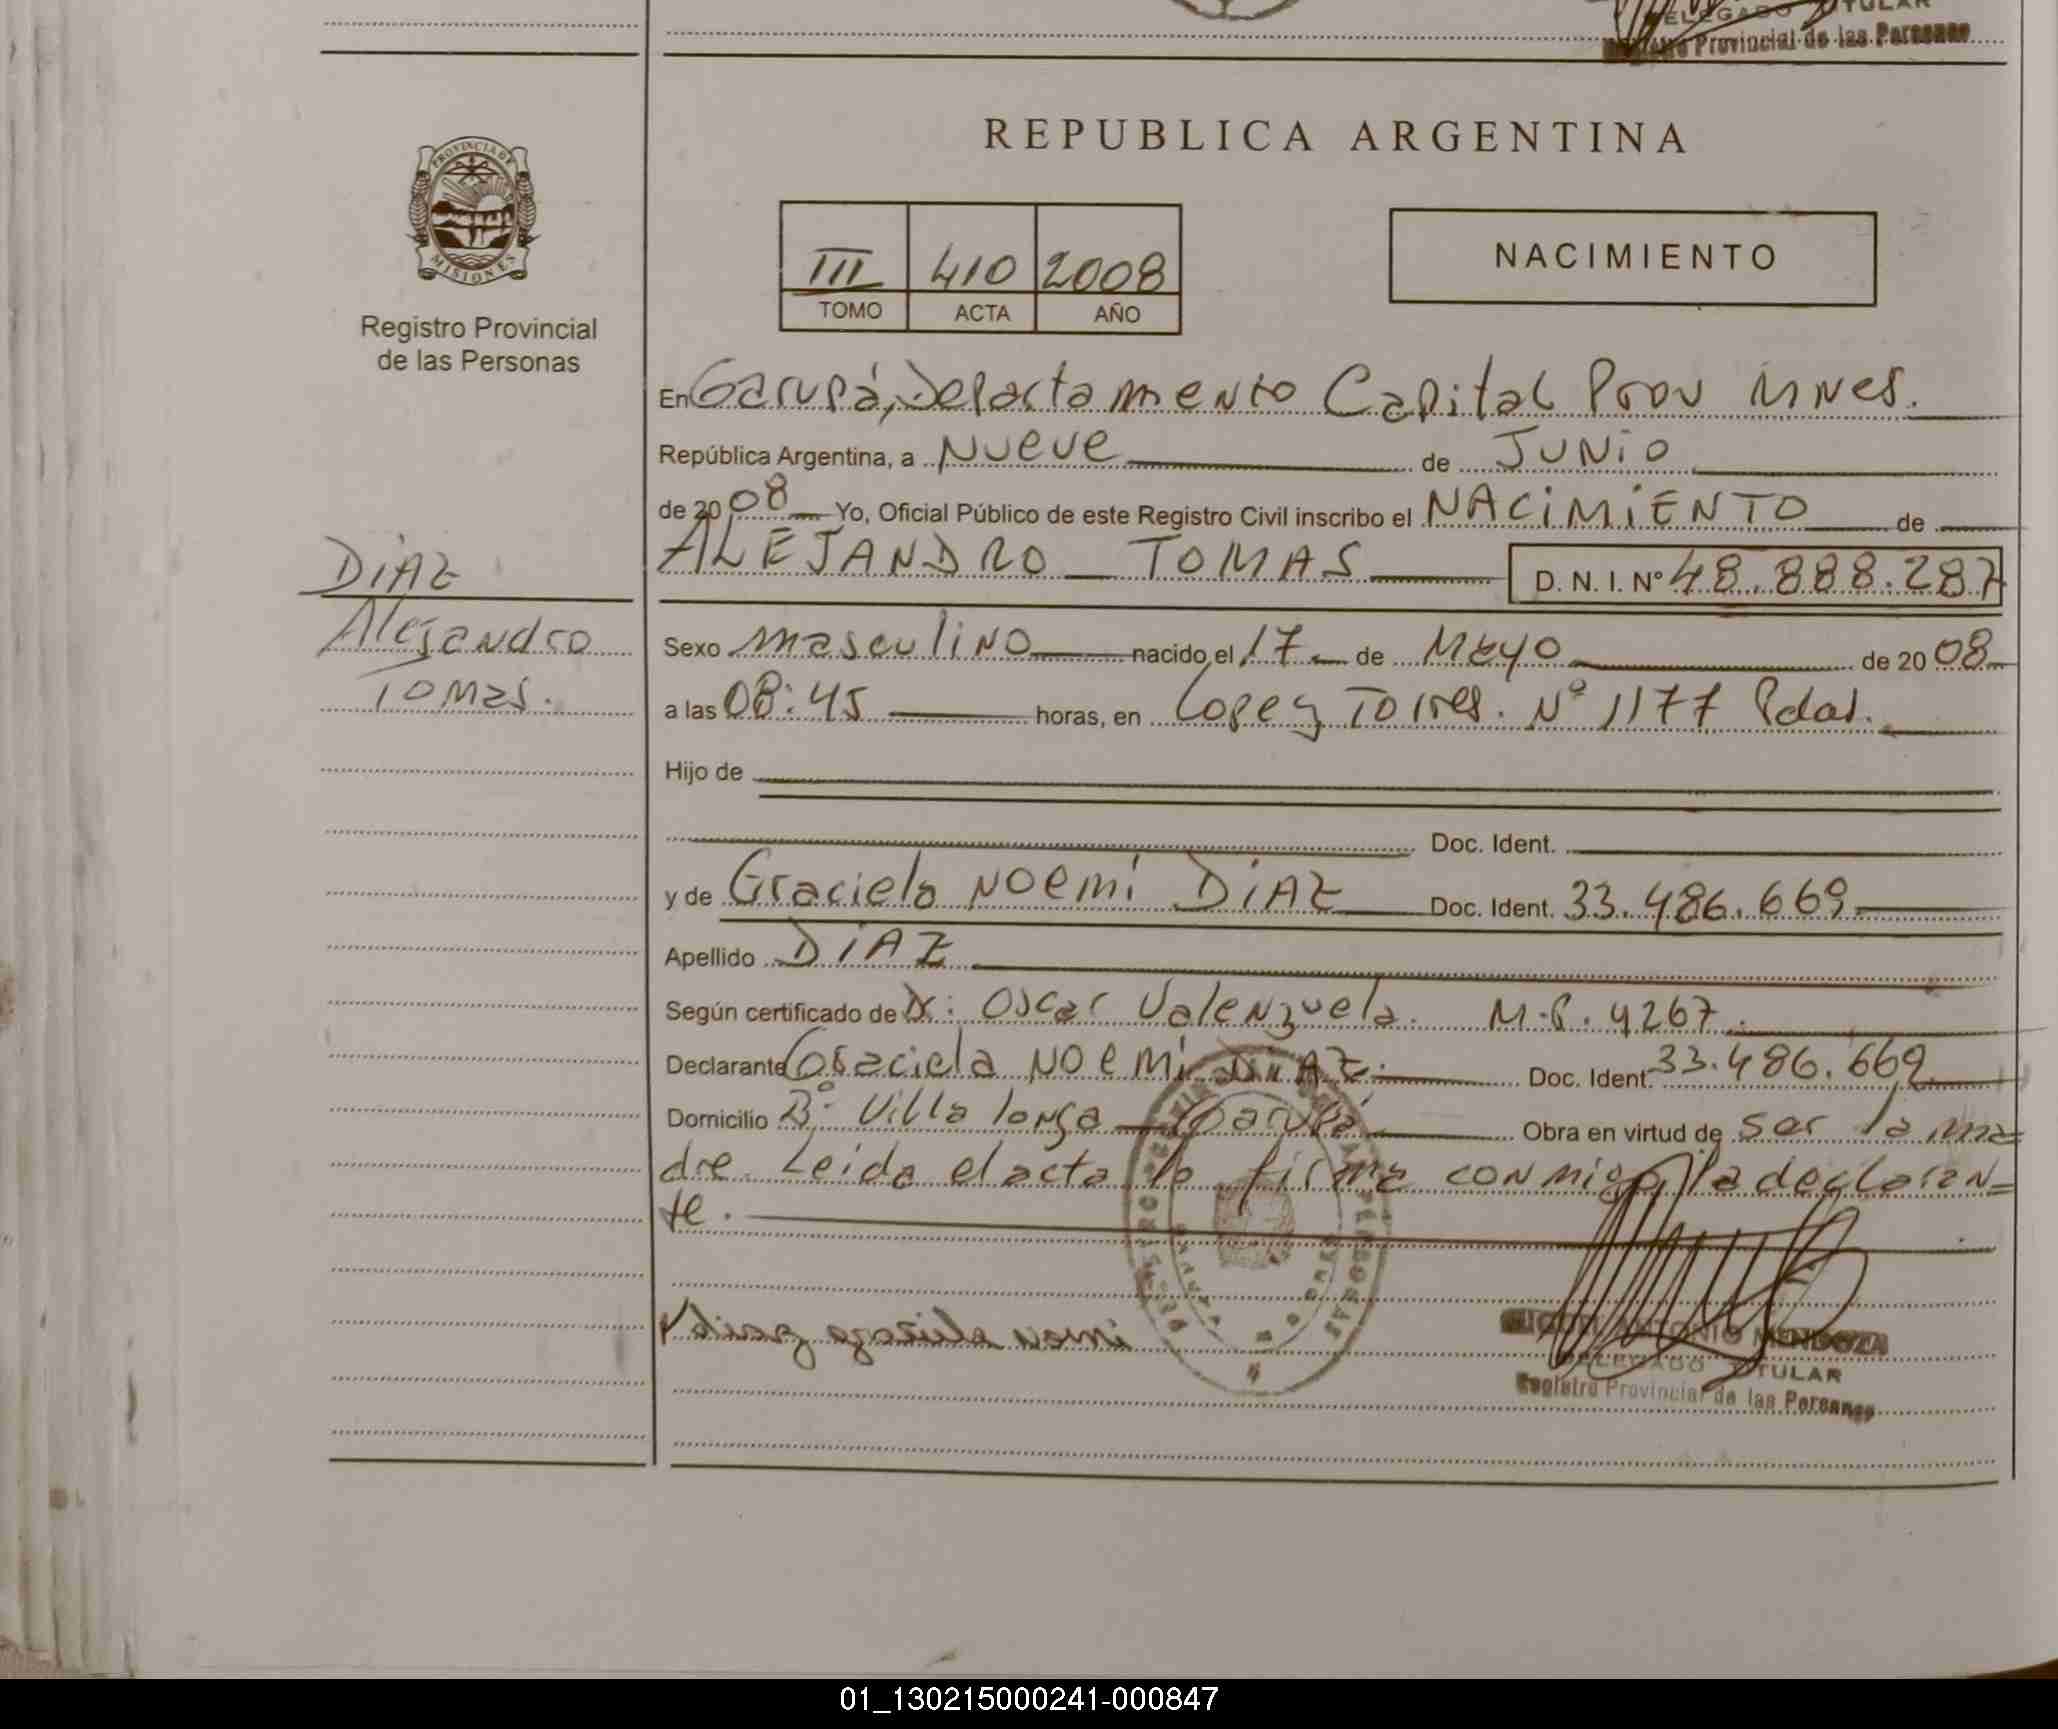 DELEGADO TITULAR
Registro Provincial de las Personas
REPUBLICA ARGENTINA
PROVINCIA DE
MISIONES
Registro Provincial
de las Personas
III 410 2008
TOMO ACTA AÑO
NACIMIENTO
En Garupá, Departamento Capital Prov Mnes.
República Argentina, a Nueve de JUNIO
de 2008 Yo, Oficial Público de este Registro Civil inscribo el NACIMIENTO de
ALEJANDRO TOMAS D. N. I. Nº 48.888.287
DIAZ
Alejandro
Tomas.
Sexo masculino nacido el 17 de Mayo de 2008
a las 08:45 horas, en Lopez Torres. Nº 1177 Pdas.
Hijo de
Doc. Ident.
y de Graciela Noemi DIAZ Doc. Ident. 33.486.669
Apellido DIAZ
Según certificado de Dr: Oscar Valenzuela. M.P. 4267.
Declarante Graciela Noemi DIAZ. Doc. Ident. 33.486.669
Domicilio Bº Villa longa Garupá Obra en virtud de ser la ma=
dre. Leida el acta la firma conmigo la declaran=
te.
noemi
ANTONIO MENDOZA
DELEGADO TITULAR
Registro Provincial de las Personas
01_130215000241-000847